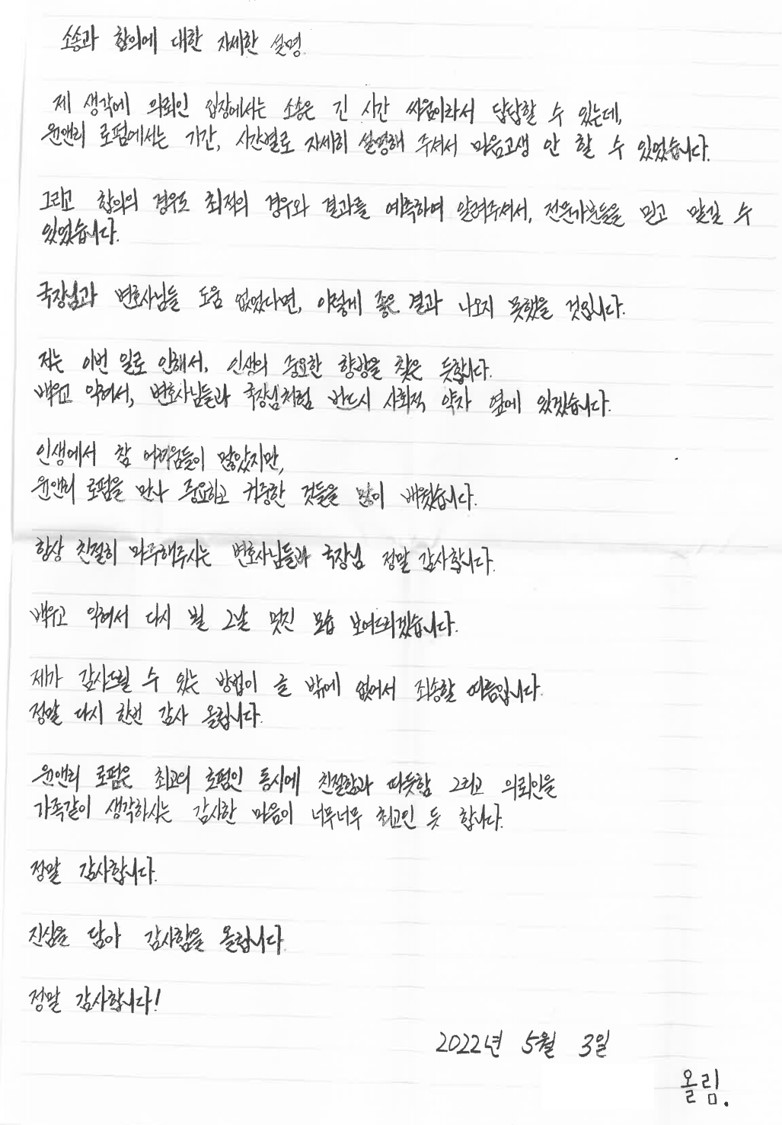 소송과 합의에 대한 자세한 설명
제 생각에 의뢰인 입장에서는 소송은 긴 시간 싸움이라서 답답할 수 있는데,
윈앤리 로펌에서는 기간, 시간별로 자세히 설명해 주셔서 마음고생 안 할 수 있었습니다.
그리고 합의의 경우도 최적의 경우와 결과를 예측하여 알려주셔서, 전문가분들을 믿고 맡길 수
있었습니다.
국장님과 변호사님들 도움 없었다면, 이렇게 좋은 결과 나오지 못했을 것입니다.
저는 이번 일로 인해서, 인생의 중요한 향방을 찾은 듯합니다.
배우고 익혀서, 변호사님들과 국장님처럼 반드시 사회적 약자 옆에 있겠습니다.
인생에서 참 어려움들이 많았지만,
윈앤리 로펌을 만나 중요하고 귀중한 것들을 많이 배웠습니다.
항상 친절히 마주해주시는 변호사님들과 국장님 정말 감사합니다.
배우고 익혀서 다시 뵐 그날 멋진 모습 보여드리겠습니다.
제가 감사드릴 수 있는 방법이 글 밖에 없어서 죄송할 따름입니다.
정말 다시 한번 감사 올립니다.
윈앤리 로펌은 최고의 로펌인 동시에 친절함과 따뜻함 그리고 의뢰인을
가족같이 생각하시는 감사한 마음이 너무너무 최고인 듯 합니다.
정말 감사합니다.
진심을 담아 감사함을 올립니다
정말 감사합니다!
2022년 5월 3일
올림.